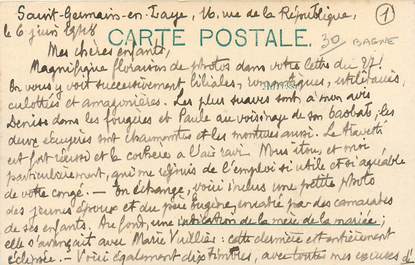 Saint-Germain-en-Laye, 16, rue de la République,
le 6 juin 1918
1
CARTE POSTALE
30 BAGNE
Mes chères enfants,
Magnifique floraison de photos dans votre lettre du 27!
On vous y voit successivement filiales, romantiques, utilitaires,
culottées et amazonières. Les plus suaves sont à mon avis
Denise dans les fougères et Paule au voisinage de son baobab; les
deux écuyères sont charmantes et les montures aussi. Le
est fort réussi et le cochère a l'air ravi. Mais tous, et moi
particulièrement, qui me réjouis de l'emploi si utile et si agréable
de votre congé. — En échange, voici inclus une petite photo
des jeunes époux et du père Eugène, envoyée par des camarades
de ses enfants. Au fond, une indication de la mère de la mariée;
elle s'avançait avec Marie Vuillier: cette dernière est entièrement
éclipsée. — Voici également des timbres, avec toutes mes excuses